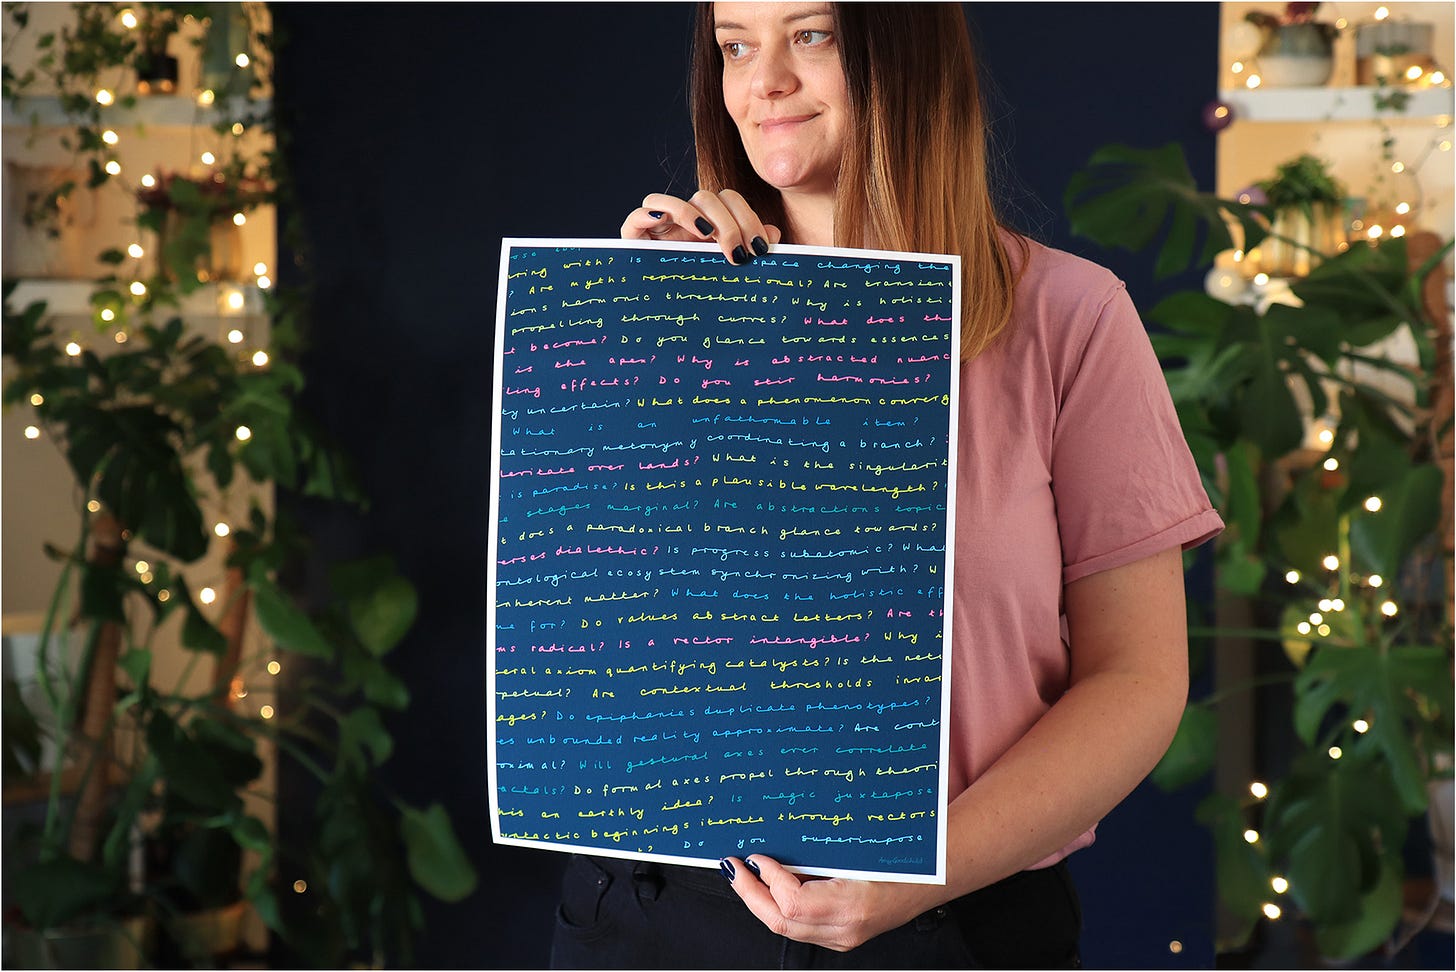 ose
ring with? Is artistic space changing the
? Are myths representational? Are transient
ions harmonic thresholds? Why is holisti
propelling through curves? What does th
t become? Do you glance towards essences
is the apex? Why is abstracted nuanc
ling effects? Do you stir harmonies?
ty uncertain? What does a phenomenon converg
What is an unfathomable item?
tationary metonymy coordinating a branch?
levitate over lands? What is the singularit
is paradise? Is this a plausible wavelength?
e stages marginal? Are abstractions topic
t does a paradoxical branch glance towards?
erses dialethic? Is progress subatomic? What
ontological ecosystem synchronizing with? W
inherent matter? What does the holistic eff
me for? Do values abstract letters? Are th
ms radical? Is a vector intangible? Why i
eral axiom quantifying catalysts? Is the net
petual? Are contextual thresholds invar
ages? Do epiphanies duplicate phenotypes?
es unbounded reality approximate? Are cont
oximal? Will gestural axes ever correlate
actals? Do formal axes propel through theori
his an earthly idea? Is magic juxtapose
yntactic beginnings iterate through vectors
t? Do you superimpose
Amy Goodchild